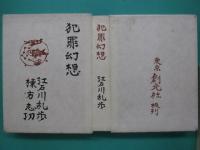 犯罪幻想
江戸川乱歩
棟方志功
犯罪幻想
江戸川乱歩
東京 創元社 版刊